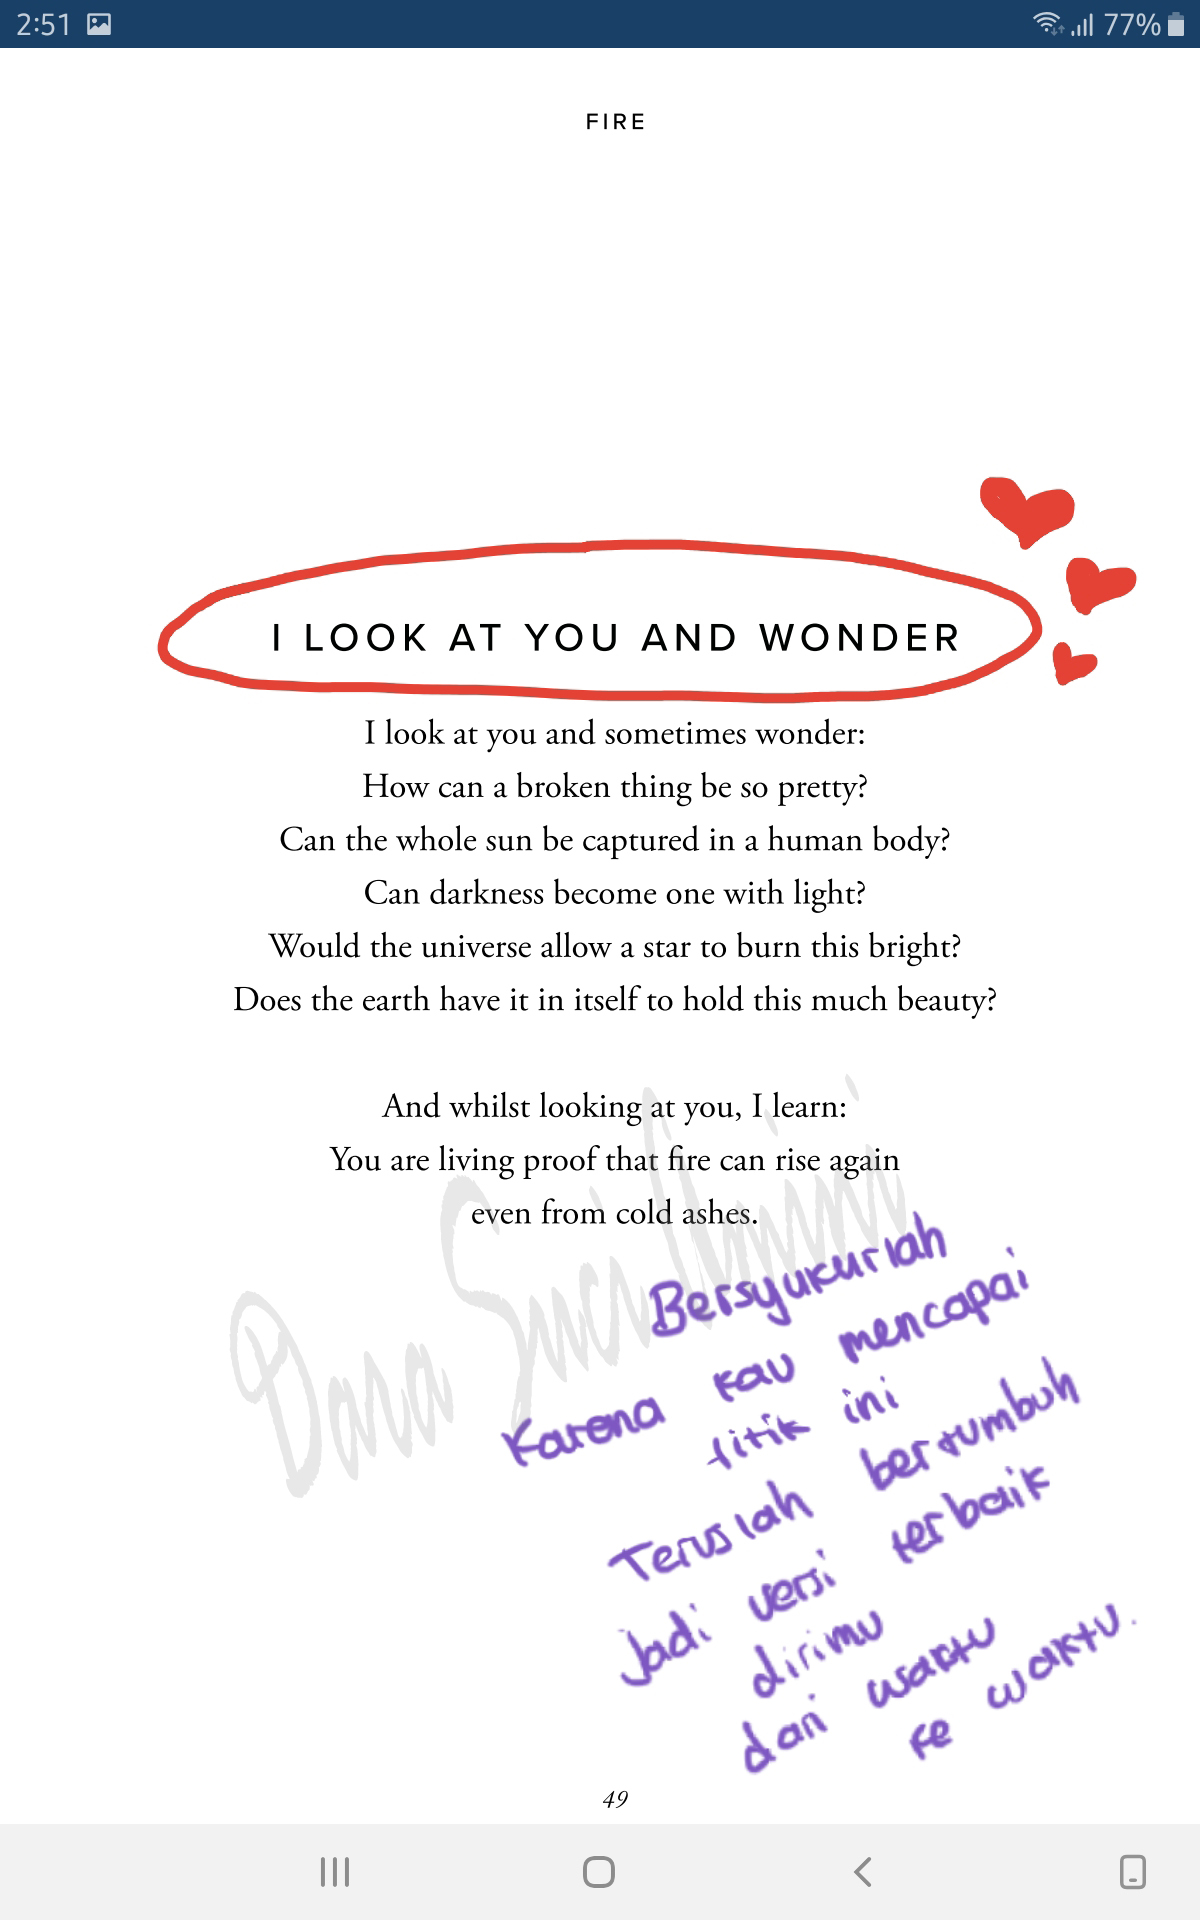 2:51
77%
FIRE
I LOOK AT YOU AND WONDER
I look at you and sometimes wonder:
How can a broken thing be so pretty?
Can the whole sun be captured in a human body?
Can darkness become one with light?
Would the universe allow a star to burn this bright?
Does the earth have it in itself to hold this much beauty?
And whilst looking at you, I learn:
You are living proof that fire can rise again
even from cold ashes.
Dara Suci
Bersyukurlah
Karena kau mencapai
titik ini
Teruslah bertumbuh
Jadi versi terbaik
dirimu
dari waktu
ke waktu.
49